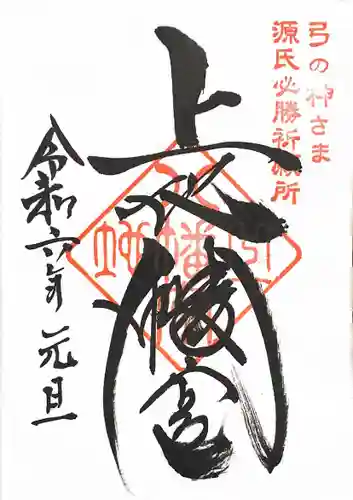 弓の神さま
源氏必勝祈願所
上八幡宮
令和六年元旦